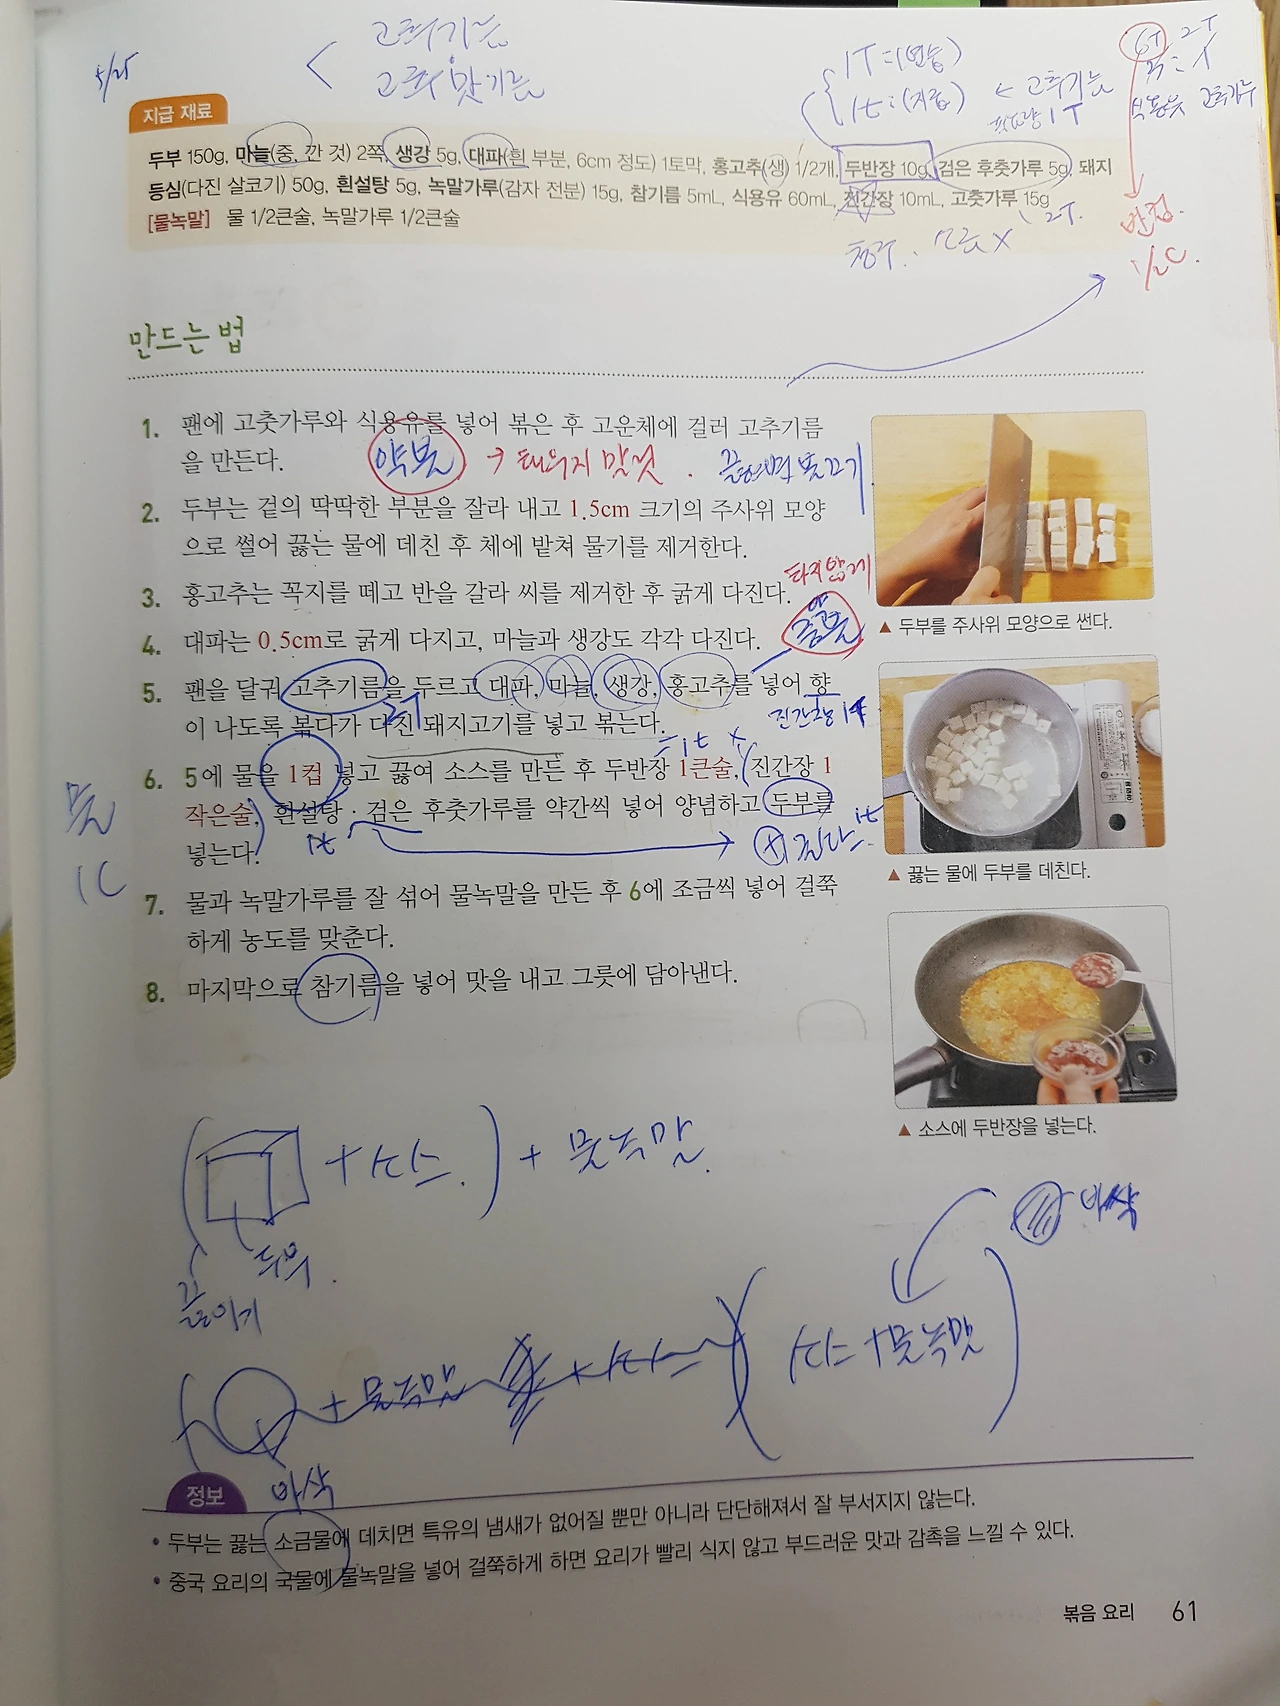 5/25
고추기름
고추맛기름
1T=(연습)
1t=(지급) ← 고추기름
1T
6T 2T
식용유 고춧가루
지급 재료
두부 150g, 마늘(중, 깐 것) 2쪽, 생강 5g, 대파(흰 부분, 6cm 정도) 1토막, 홍고추(생) 1/2개, 두반장 10g, 검은 후춧가루 5g, 돼지
등심(다진 살코기) 50g, 흰설탕 5g, 녹말가루(감자 전분) 15g, 참기름 5mL, 식용유 60mL, 진간장 10mL, 고춧가루 15g
[물녹말] 물 1/2큰술, 녹말가루 1/2큰술
2T.
청주.
1/2C.
만드는 법
1. 팬에 고춧가루와 식용유를 넣어 볶은 후 고운체에 걸러 고추기름
을 만든다.
약불 → 태우지 말것.
2. 두부는 겉의 딱딱한 부분을 잘라 내고 1.5cm 크기의 주사위 모양
으로 썰어 끓는 물에 데친 후 체에 밭쳐 물기를 제거한다.
타지않게
3. 홍고추는 꼭지를 떼고 반을 갈라 씨를 제거한 후 굵게 다진다.
4. 대파는 0.5cm로 굵게 다지고, 마늘과 생강도 각각 다진다.
▲ 두부를 주사위 모양으로 썬다.
5. 팬을 달궈 고추기름을 두르고 대파, 마늘, 생강, 홍고추를 넣어 향
이 나도록 볶다가 다진 돼지고기를 넣고 볶는다.
2T
진간장 1t
=1t
6. 5에 물을 1컵 넣고 끓여 소스를 만든 후 두반장 1큰술, 진간장 1
작은술, 흰설탕·검은 후춧가루를 약간씩 넣어 양념하고 두부를
넣는다.
1t
1t
물
1C
▲ 끓는 물에 두부를 데친다.
7. 물과 녹말가루를 잘 섞어 물녹말을 만든 후 6에 조금씩 넣어 걸쭉
하게 농도를 맞춘다.
8. 마지막으로 참기름을 넣어 맛을 내고 그릇에 담아낸다.
▲ 소스에 두반장을 넣는다.
( + 소스.) + 물녹말.
두부.
끓이기
바싹
+ 물녹말 + 소스 (소스 + 물녹말)
바삭
정보
• 두부는 끓는 소금물에 데치면 특유의 냄새가 없어질 뿐만 아니라 단단해져서 잘 부서지지 않는다.
• 중국 요리의 국물에 물녹말을 넣어 걸쭉하게 하면 요리가 빨리 식지 않고 부드러운 맛과 감촉을 느낄 수 있다.
볶음 요리 61